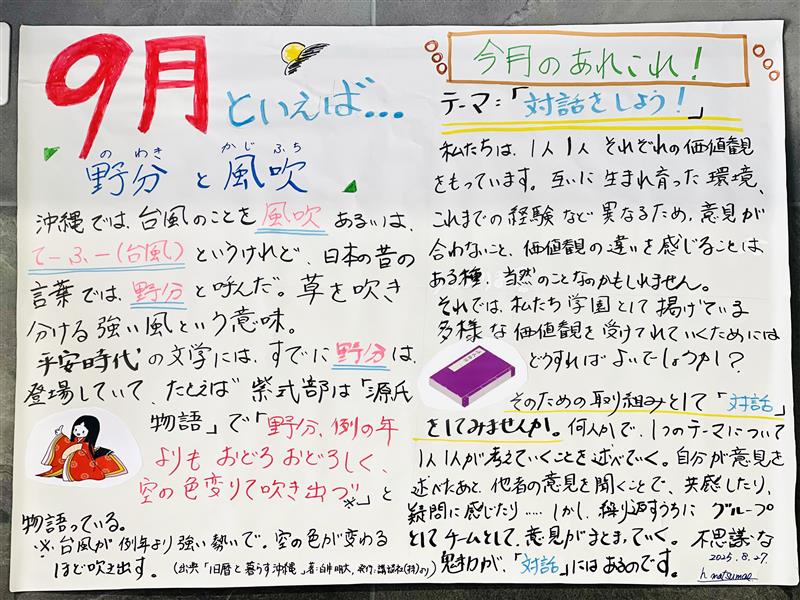 9月といえば…
のわき かじふち
野分と風吹
沖縄では、台風のことを風吹あるいは、
てーふー(台風)というけれど、日本の昔の
言葉では、野分と呼んだ。草を吹き
分ける強い風という意味。
平安時代の文学には、すでに野分は、
登場していて、たとえば紫式部は「源氏
物語」で「野分、例の年
よりもおどろおどろしく、
空の色変りて吹き出づ※」と
物語っている。
※台風が例年より強い勢いで。空の色が変わる
ほど吹き出す。(出典「旧暦と暮らす沖縄」著:白井明大、発行:講談社(株)より)
今月のあれこれ!
テーマ:「対話をしよう!」
私たちは、1人1人それぞれの価値観
をもっています。互いに生まれ育った環境、
これまでの経験など異なるため、意見が
合わないこと、価値観の違いを感じることは
ある種、当然のことなのかもしれません。
それでは、私たち学園として掲げている
多様な価値観を受け入れていくためには
どうすればよいでしょうか?
そのための取り組みとして「対話」
をしてみませんか。何人かで、1つのテーマについて
1人1人が考えていくことを述べていく。自分が意見を
述べたあと、他者の意見を聞くことで、共感したり、
疑問に感じたり……しかし、繰り返すうちにグループ
としてチームとして、意見がまとまっていく。不思議な
魅力が、「対話」にはあるのです。
2025.8.27.
h.matsumae